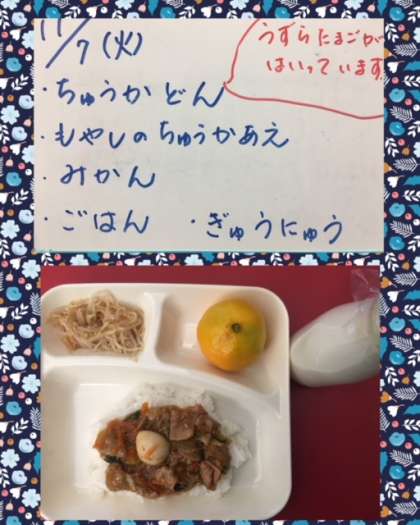 11/7(火)
うずらたまごが
はいっています
・ちゅうかどん
・もやしのちゅうかあえ
・みかん
・ごはん ・ぎゅうにゅう